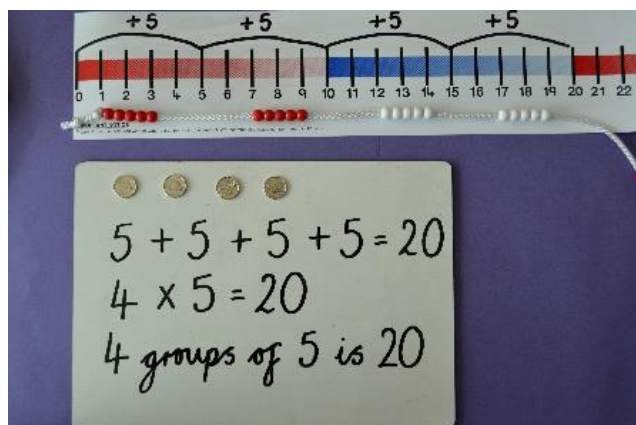 +5 +5 +5 +5
0 1 2 3 4 5 6 7 8 9 10 11 12 13 14 15 16 17 18 19 20 21 22
5 + 5 + 5 + 5 = 20
4 x 5 = 20
4 groups of 5 is 20